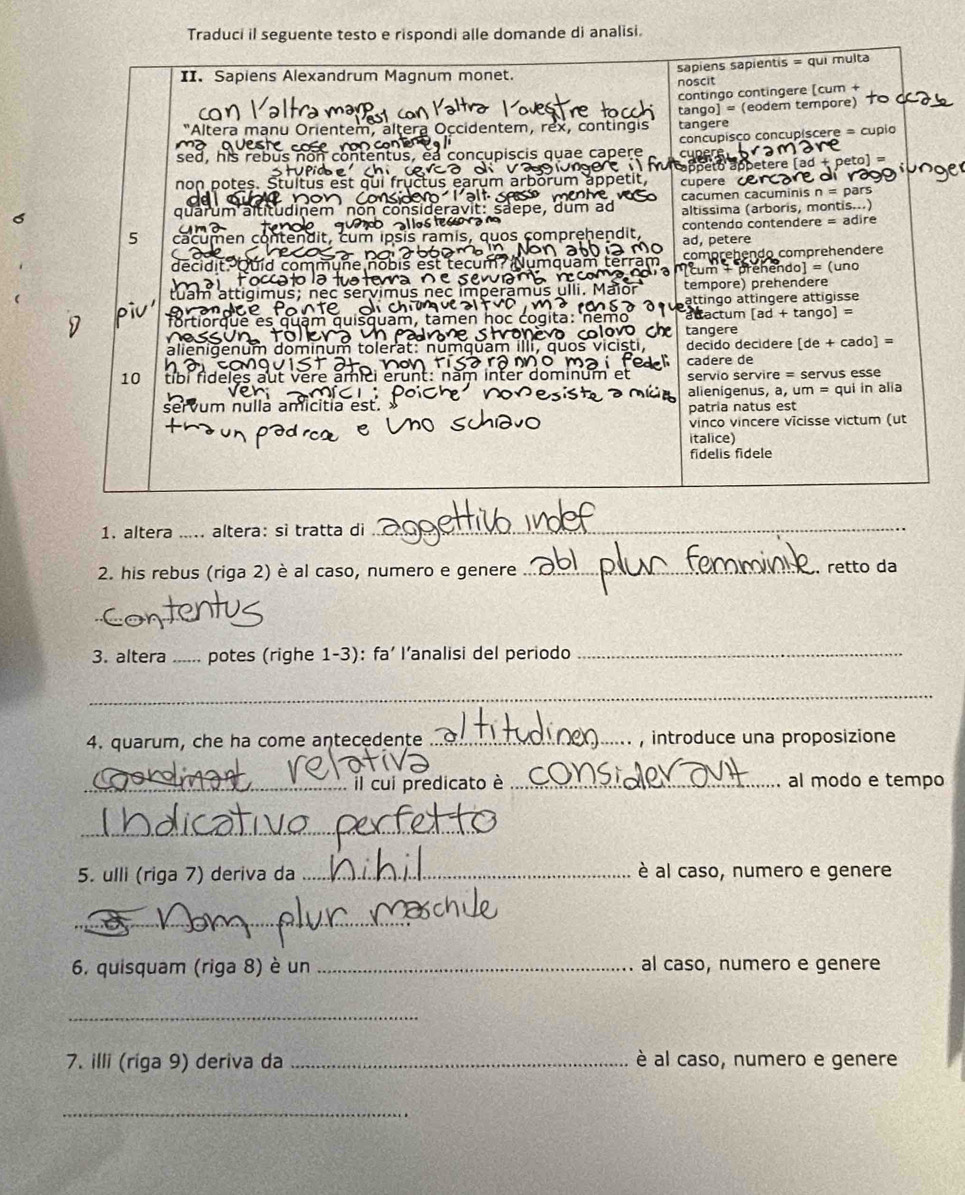 Traduci il seguente testo e rispondi alle domande di analisi.
II. Sapiens Alexandrum Magnum monet.
con l'altra mano est con l'altra l'ovest re tocchi
"Altera manu Orientem, altera Occidentem, rex, contingis
ma queste cose non
sed, his rebus non contentus, ea concupiscis quae capere
stupido e' chi cerca di raggiungere il frutto
non potes. Stultus est qui fructus earum arborum appetit,
non considero l'alt. spesso mentre verso
quarum altitudinem non consideravit: saepe, dum ad
cima tende
5 cacumen contendit, cum ipsis ramis, quos comprehendit,
cade che cosa noi abbiamo in Non abbiamo
decidit. Quid commune nobis est tecum? Numquam terram
mai toccato la tua terra ne
tuam attigimus; nec servimus nec imperamus ulli. Maior
piu' grande e forte di chiunque altro, ma pensa a questo
fortiorque es quam quisquam, tamen hoc cogita: nemo
nessuno un padrone straniero coloro che
alienigenum dominum tolerat: numquam illi, quos vicisti,
hai conquistato non mai fedeli
10 tibi fideles aut vere amici erunt: nam inter dominum et
veri amici: poiche' non esiste amicizia
servum nulla amicitia est. »
tra un padrone e uno schiavo
sapiens sapientis = qui multa
noscit
contingo contingere [cum +
tango] = (eodem tempore)
tangere
concupisco concupiscere = cupio
cupere bramare
appeto appetere [ad + peto] =
cupere cercare di raggiungere
cacumen cacuminis n = pars
altissima (arboris, montis...)
contendo contendere = adire
ad, petere
comprehendo comprehendere
[cum + prehendo] = (uno
tempore) prehendere
attingo attingere attigisse
attactum [ad + tango] =
tangere
decido decidere [de + cado] =
cadere de
servio servire = servus esse
alienigenus, a, um = qui in alia
patria natus est
vinco vincere vīcisse victum (ut
italice)
fidelis fidele
1. altera ..... altera: si tratta di aggettivo indef
2. his rebus (riga 2) è al caso, numero e genere abl plur femminile retto da
contentus
3. altera ...... potes (righe 1-3): fa' l'analisi del periodo
4. quarum, che ha come antecedente altitudinen , introduce una proposizione
relativa il cui predicato è al modo e tempo
Indicativo perfetto
5. ulli (riga 7) deriva da nihil è al caso, numero e genere
Nom plur maschile
6. quisquam (riga 8) è un al caso, numero e genere
7. illi (riga 9) deriva da è al caso, numero e genere